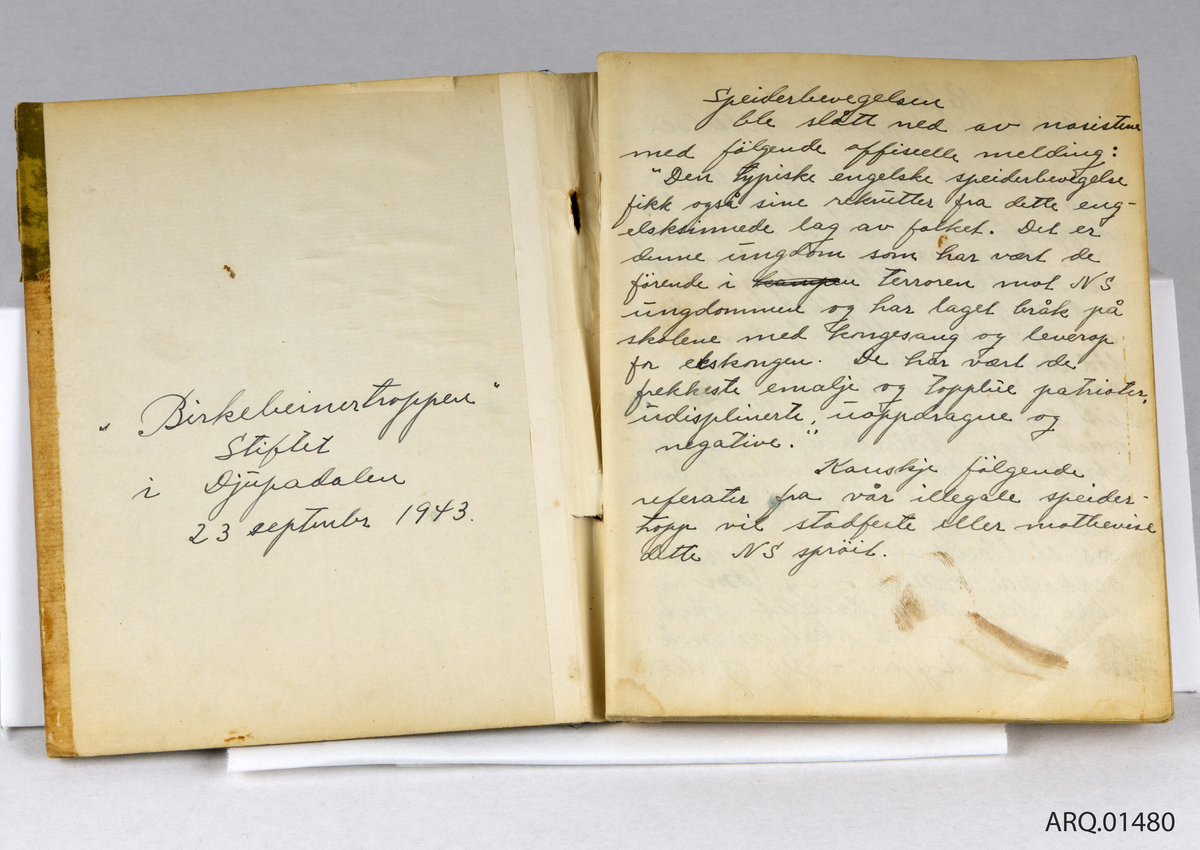 "Birkebeinertroppen"
Stiftet
i Djupadalen
23 september 1943.
Speiderbevegelsen
ble slått ned av nasistene
med følgende offisielle melding:
"Den typiske engelske speiderbevegelse
fikk også sine rekrutter fra dette eng-
elsksinnede lag av folket. Det er
denne ungdom som har vært de
førende i kampen terroren mot NS
ungdommen og har laget bråk på
skolene med kongesang og leverop
for ekskongen. De har vært de
frekkeste emalje og topplue patrioter,
udisplinerte, uoppdragne og
negative."
Kanskje følgende
referater fra vår illegale speider-
tropp vil stadfeste eller motbevise
dette NS sprøit.
ARQ.01480